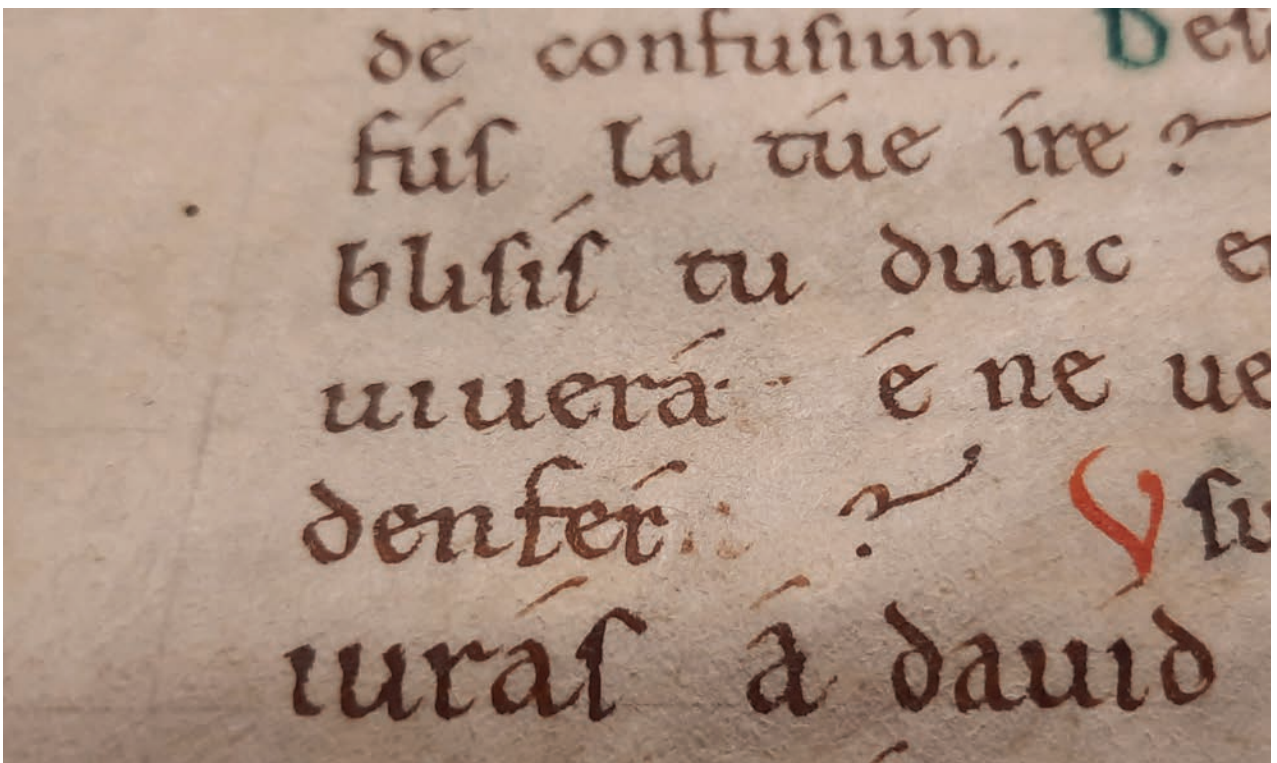 de confusiun. Des
fús la túe íre ?
blisís tu dúnc en
uiuerá é ne ue
denfér ? Vsu
iurás á dauíd